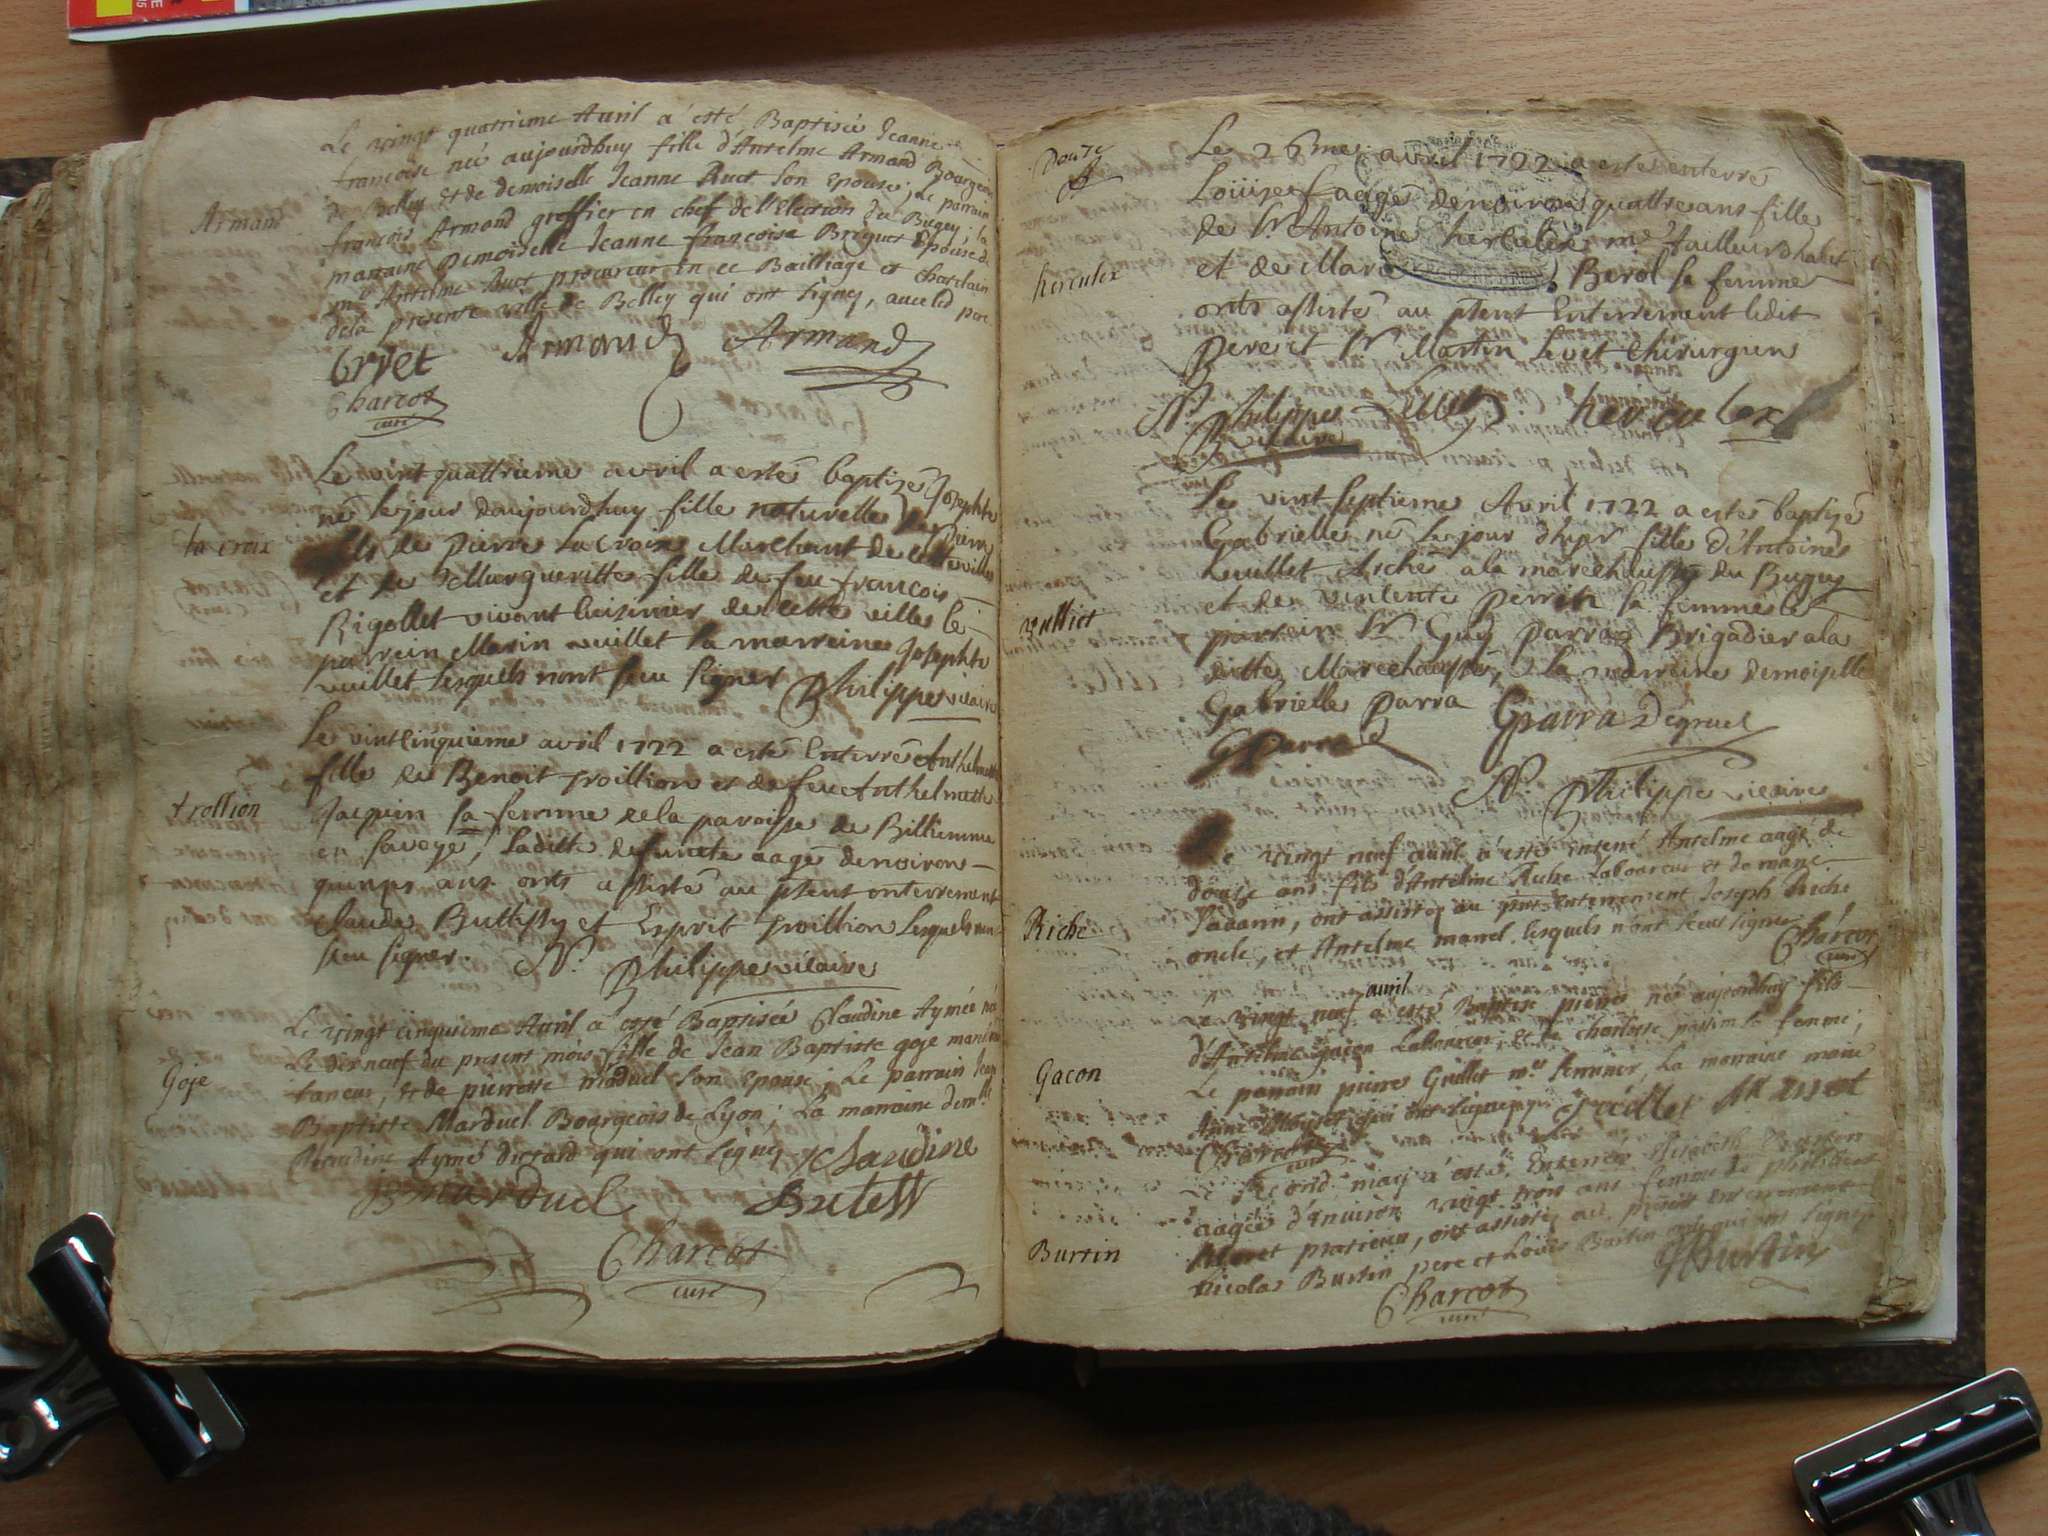 Le vingt quatrieme Avril a esté Baptisée Jeanne
françoise née aujourdhuy fille d'Antelme Armand Bourgeois
de Belley et de demoiselle Jeanne Ruet son Epouse; Le parrain
françois Armand greffier en chef de l'Election du Bugey; la
marraine Demoiselle Jeanne françoise Briguet Epouse de
me Antelme Ruet procureur en ce Bailliage et chatelain
de la presente ville de Belley qui ont signez, avec led pere
Armand
Armand Armand
Charcot
curé
Le vint quattrieme avril a estè baptizè Josephte
nè le jour daujourdhuy fille naturelle
de pierre Lacroix Marchant de cette ville
et de Marguerittte fille de feu francois
Rigollet vivant Cuisinier de cette ville le
parrein Marin vuillet la marreine Josephte
vuillet lesquels nont sceu signer Philippe vicaire
la croix
Le vintcinquieme avril 1722 a estè Enterrè Anthelmette
fille de Benoit troillion et de feu Anthelmette
Jacquin sa femme de la paroisse de Billieme
en savoye, laditte defuncte aagè denviron
quinze ans onts assistè au pteni enterrement
Claude Buttissy et Esprit troillion Lesquels nont
sceu signer. N. Philippe vicaire
trollion
Le vingt cinquieme Avril a esté Baptisée Claudine Aymée née
Le dixneuf du present mois fille de Jean Baptiste goje
et de pierrette maduel son Epouse; Le parrain Jean
Baptiste Marduel Bourgeois de Lyon; La marraine demlle
Claudine Aymé qui ont signez Claudine
Goje
Marduel
Charcot
curé
Le 26me avril 1722 a estè enterrè
Louise aagè denviron quattre ans fille
de Sr Antoine herculex me Tailleur dhabit
et de Marie Berol sa femme
onts assistè au ptent Enterrement ledit
Pere et Sr Martin Levet Chirurgien
N. Philippe Levet herculex
vicaire
herculex
Le vint septieme Avril 1722 a estè baptizè
Gabrielle nè le jour dhyer fille d'Antoine
vuillet Archè a la marechaussè du Bugey
et de vincente perrin sa femme le
parrein Sr Guy Parra Brigadier a la
ditte Marechaussè, & la marreine demoiselle
Gabrielle Parra Gparra Degruel
GParra
N. Philippe vicaire
vulliet
Le vingt neuf avril a esté enterré Antelme aagé de
douze ans fils d'Antelme Riche Laboureur et de marie
, ont assistez au pnt enterrement Joseph Riche
oncle, et Antelme marcel lesquels n'ont sceu signer Charcot
curé
Riche
avril
Le vingt neuf a esté Baptisé pierre né aujourdhuy fils
d'Antelme gacon Laboureur, et de charlotte passin sa femme;
Le parrain pierre Guillet me serrurier, La marraine marie
Anne qui ont signez
Charcot
curé
Gacon
Le second may a esté Enterrée Elisabeth Burtin
aagée d'Environ vingt trois ans femme de philibert
, ont assistez au present enterrement
Nicolas Burtin pere et Louis Burtin qui ont signez
Burtin
Burtin
Charcot
curé